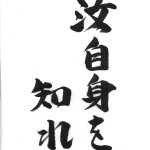 汝自身を
知れ